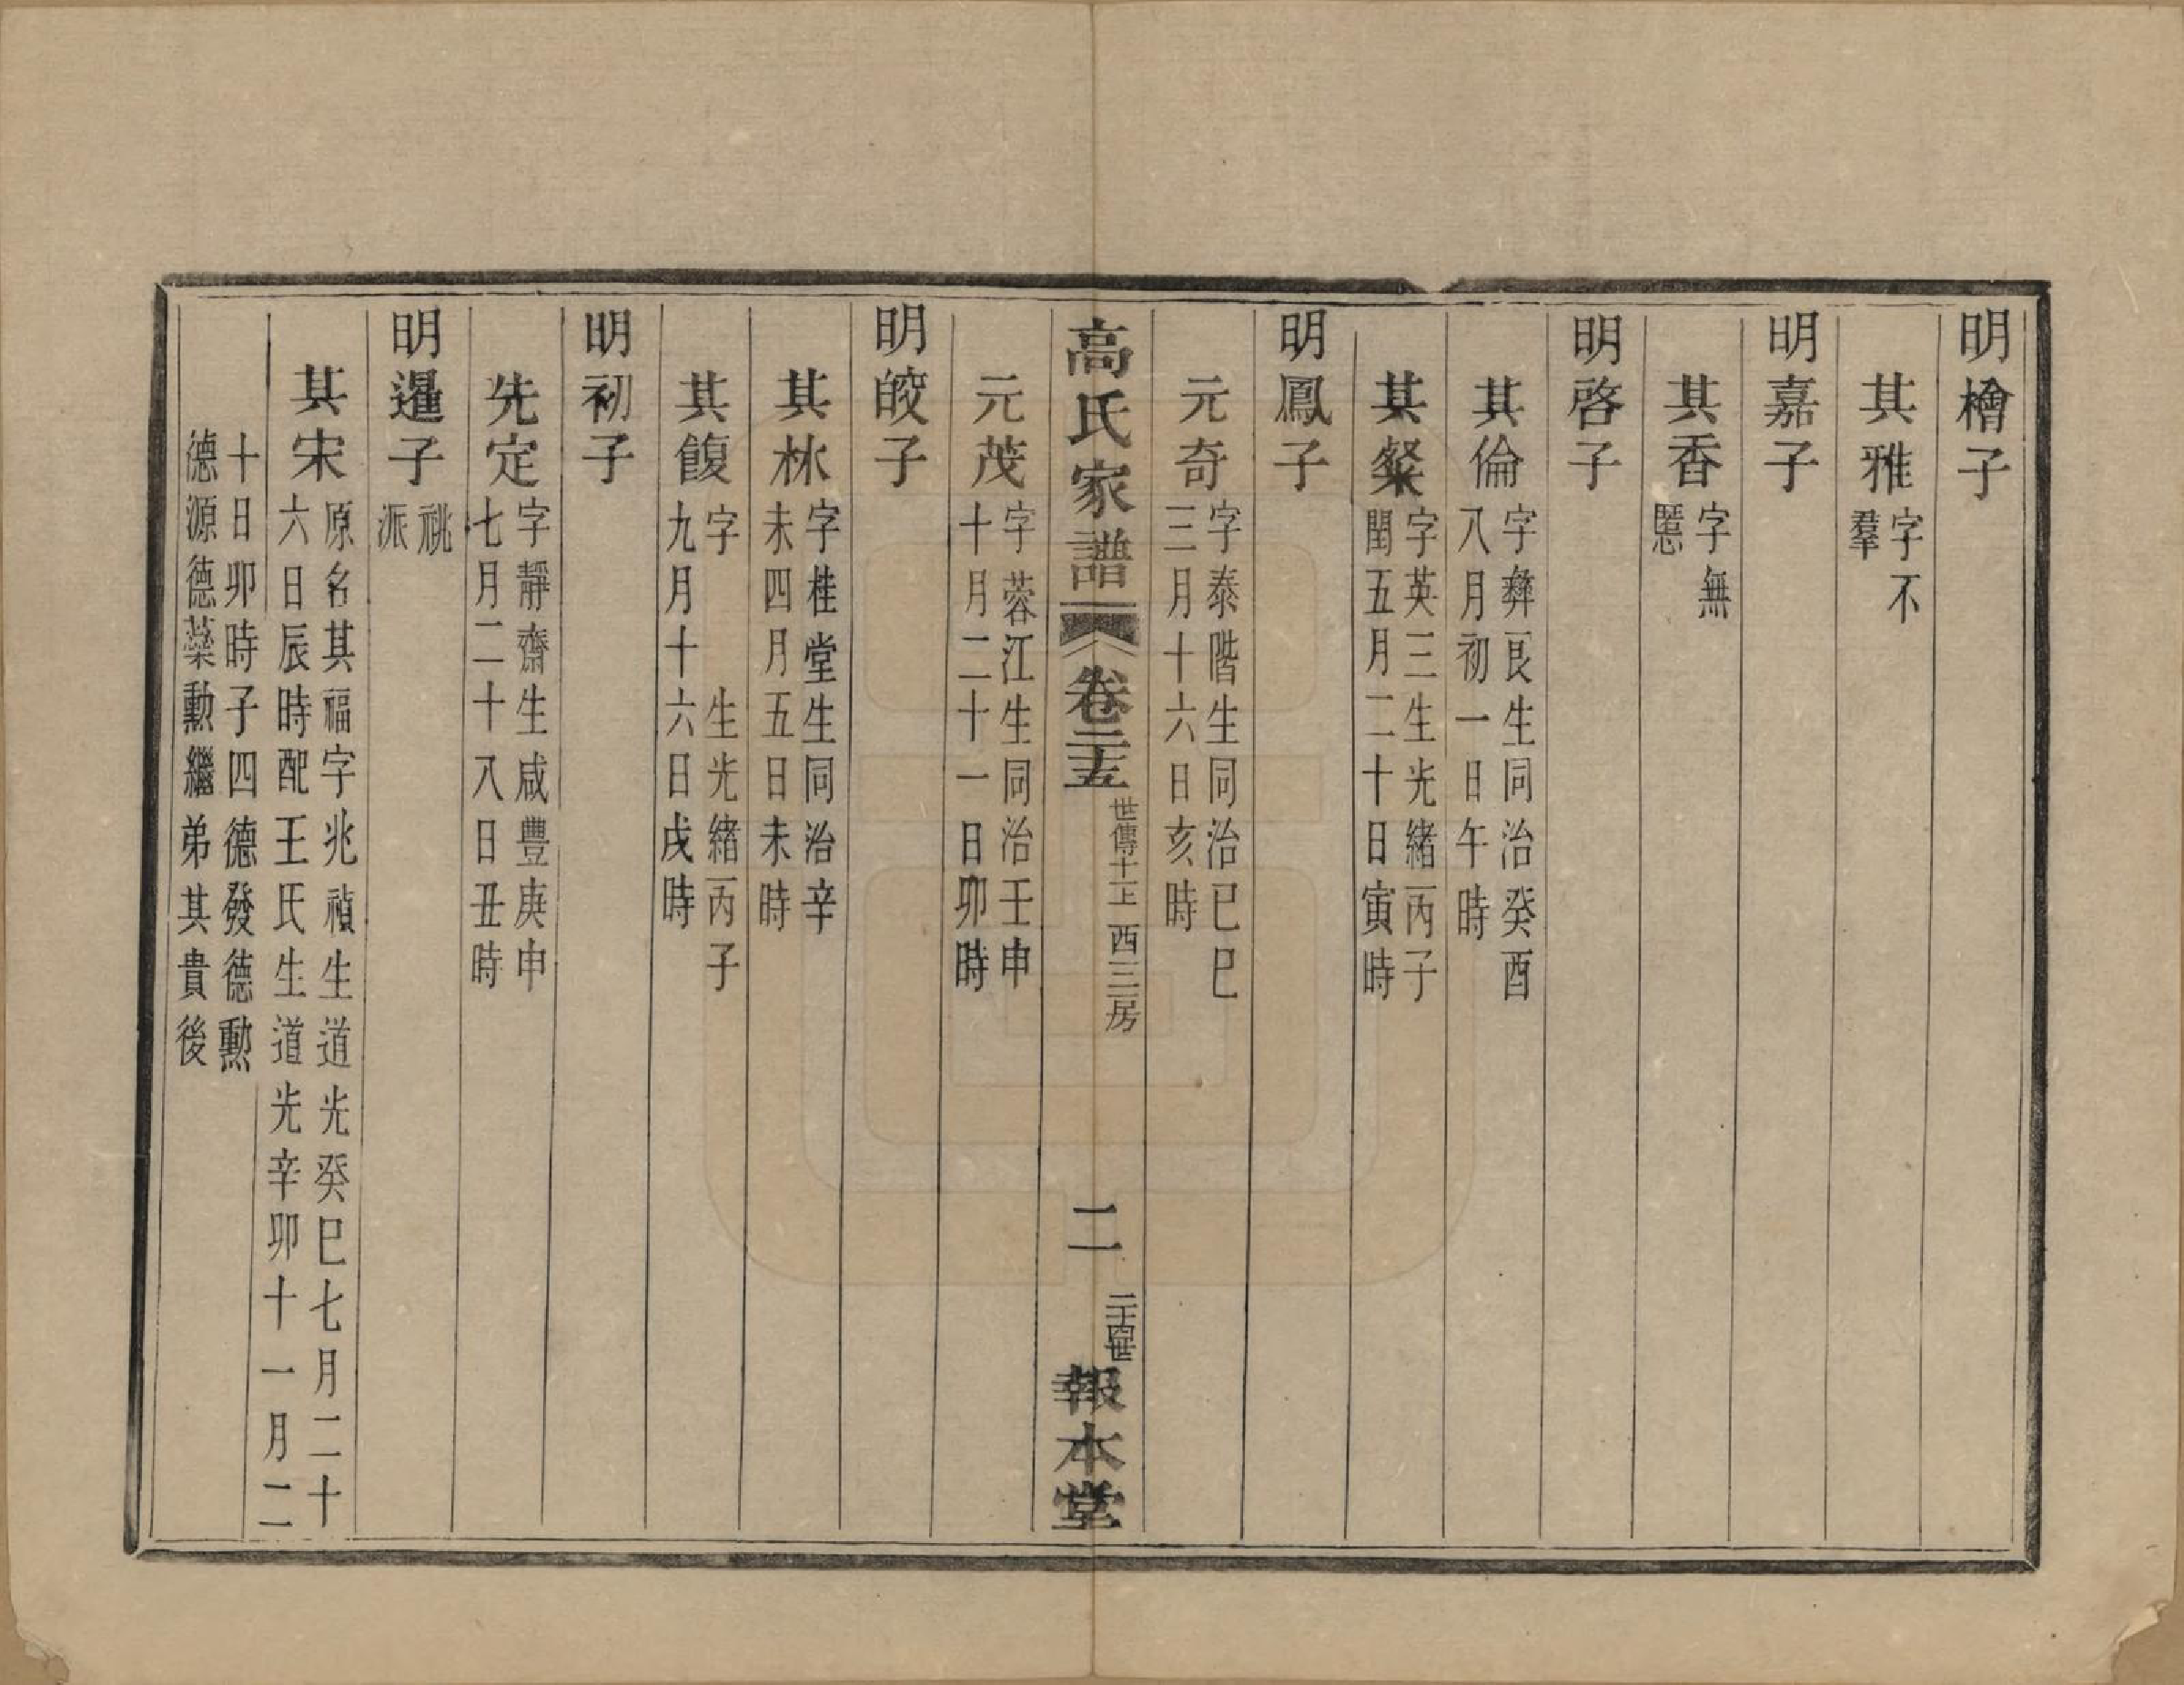 明檜子
其雅字不羣
明嘉子
其香字無慝
明啓子
其倫字彝艮生同治癸酉八月初一日午時
其粲字英三生光緒丙子閏五月二十日寅時
明鳳子
元奇字泰階生同治己巳三月十六日亥時
高氏家譜 卷二十五 世傳十一上 西三房 二 二十四世 報本堂
元茂字蓉江生同治壬申十月二十一日卯時
明皎子
其林字桂堂生同治辛未四月五日未時
其馥字 生光緒丙子九月十六日戌時
明初子
先定字靜齋生咸豐庚申七月二十八日丑時
明暹子祧派
其宋原名其福字兆禎生道光癸巳七月二十六日辰時配王氏生道光辛卯十一月二
十日卯時子四德發德勲德源德蘂勲繼弟其貴後